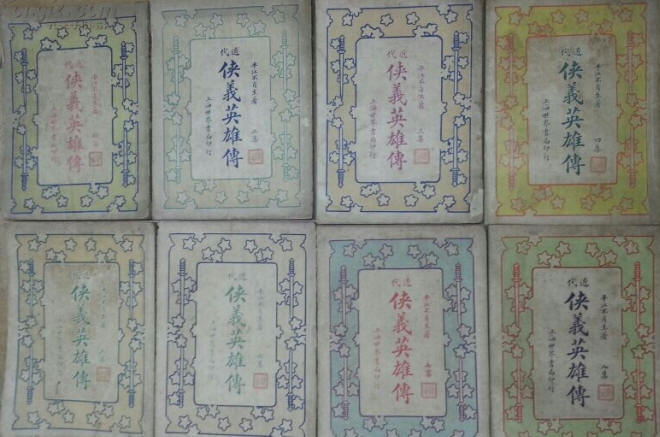 近代
平江不肖生著
俠義英雄傳
上海世界書局印行
近代
平江不肖生著
二集
俠義英雄傳
上海世界書局印行
近代
平江不肖生著
三集
俠義英雄傳
上海世界書局印行
近代
平江不肖生著
四集
俠義英雄傳
上海世界書局印行
近代
俠義英雄傳
近代
平江不肖生著
俠義英雄傳
上海世界書局印行
近代
平江不肖生著
俠義英雄傳
上海世界書局印行
近代
平江不肖生著
八集
俠義英雄傳
上海世界書局印行